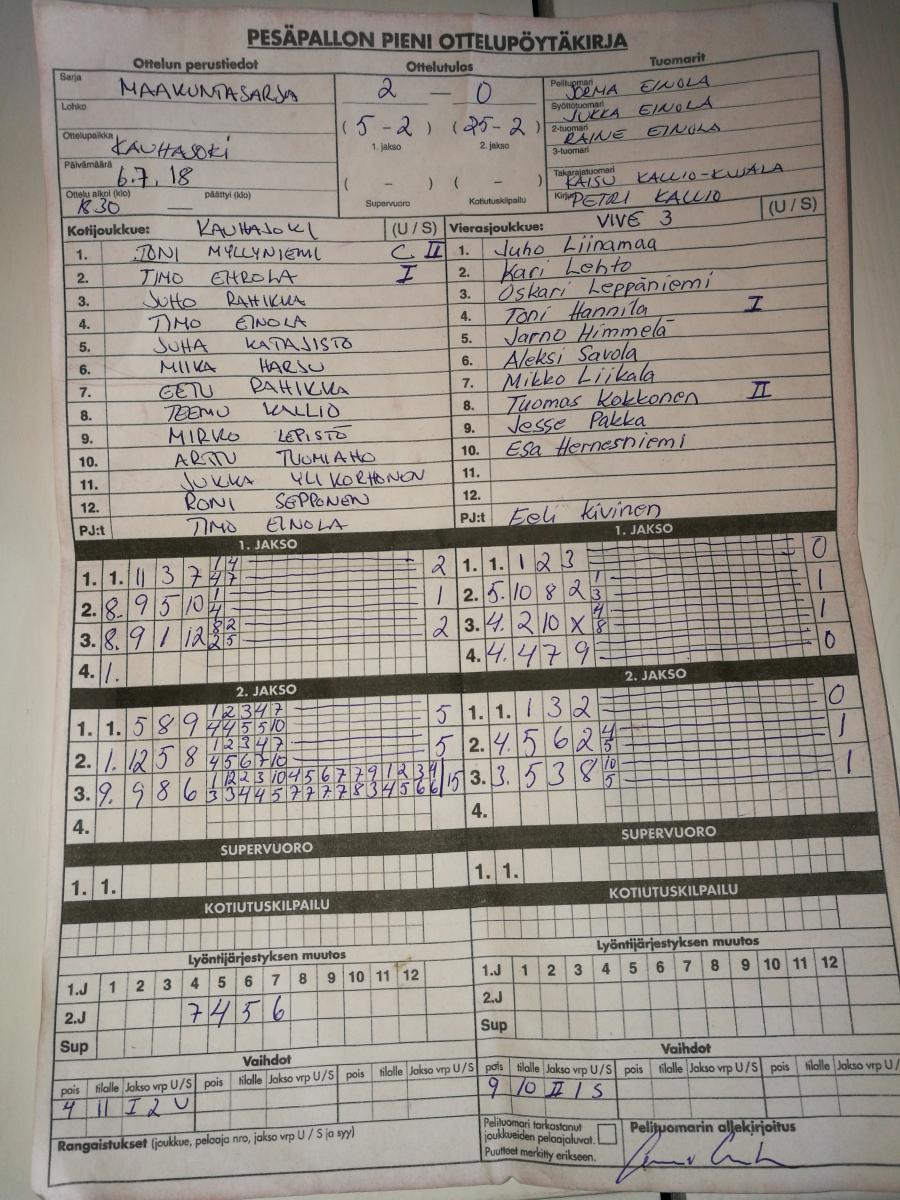 PESÄPALLON PIENI OTTELUPÖYTÄKIRJA
Ottelun perustiedot
Ottelutulos
Tuomarit
Sarja
MAAKUNTASARJA
Lohko
Ottelupaikka
KAUHAJOKI
Päivämäärä
6.7.18
Ottelu alkoi (klo) päättyi (klo)
18.30 —
2 — 0
( 5 - 2 ) ( 25 - 2 )
1. jakso 2. jakso
( - ) ( - )
Supervuoro Kotiutuskilpailu
Pelituomari JORMA EINOLA
Syöttötuomari JUKKA EINOLA
2-tuomari RAINE EINOLA
3-tuomari
Takarajatuomari KAISU KALLIO-KUJALA
Kirjuri PETRI KALLIO
Kotijoukkue: KAUHAJOKI (U / S)
1. TONI MYLLYNIEMI C II
2. TIMO EHROLA I
3. JUHO RAHIKKA
4. TIMO EINOLA
5. JUHA KATAJISTO
6. MIIKA HARJU
7. EETU RAHIKKA
8. TEEMU KALLIO
9. MIRKO LEPISTÖ
10. ARTTU TUOMIAHO
11. JUKKA YLIKORHONEN
12. RONI SEPPONEN
PJ:t TIMO EINOLA
Vierasjoukkue: VIVE 3 (U / S)
1. Juho Liinamaa
2. Kari Lehto
3. Oskari Leppäniemi
4. Toni Hannila I
5. Jarno Himmelä
6. Aleksi Savola
7. Mikko Liikala
8. Tuomas Kokkonen II
9. Jesse Pakka
10. Esa Hernesniemi
11.
12.
PJ:t Eeli Kivinen
1. JAKSO
1. 1. 11 3 7 1 4 2
4 7
2. 8. 9 5 10 1 1
4
3. 8. 9 1 12 8 2 2
2 5
4. 1.
1. JAKSO
1. 1. 1 2 3 0
2. 5. 10 8 2 1 1
3
3. 4. 2 10 X 4 1
8
4. 4. 4 7 9 0
2. JAKSO
1. 1. 5 8 9 1 2 3 4 7 5
4 4 5 5 10
2. 1. 12 5 8 1 2 3 4 7 5
4 5 6 7 10
3. 9. 9 8 6 1 12 2 3 10 4 5 6 7 7 9 1 2 3 4 15
3 3 4 4 5 7 7 7 7 8 3 4 5 6 6
4.
2. JAKSO
1. 1. 1 3 2 0
2. 4. 5 6 2 4 1
5
3. 3. 5 3 8 10 1
5
4.
SUPERVUORO
1. 1.
SUPERVUORO
1. 1.
KOTIUTUSKILPAILU
KOTIUTUSKILPAILU
Lyöntijärjestyksen muutos
1.J 1 2 3 4 5 6 7 8 9 10 11 12
2.J 7 4 5 6
Sup
Lyöntijärjestyksen muutos
1.J 1 2 3 4 5 6 7 8 9 10 11 12
2.J
Sup
Vaihdot
pois tilalle Jakso vrp U / S pois tilalle Jakso vrp U / S pois tilalle Jakso vrp U / S
4 11 I 2 U
Vaihdot
pois tilalle Jakso vrp U / S pois tilalle Jakso vrp U / S pois tilalle Jakso vrp U / S
9 10 II 1 S
Rangaistukset (joukkue, pelaaja nro, jakso vrp U / S ja syy)
Pelituomari tarkastanut
joukkueiden pelaajaluvat.
Puutteet merkitty erikseen.
Pelituomarin allekirjoitus